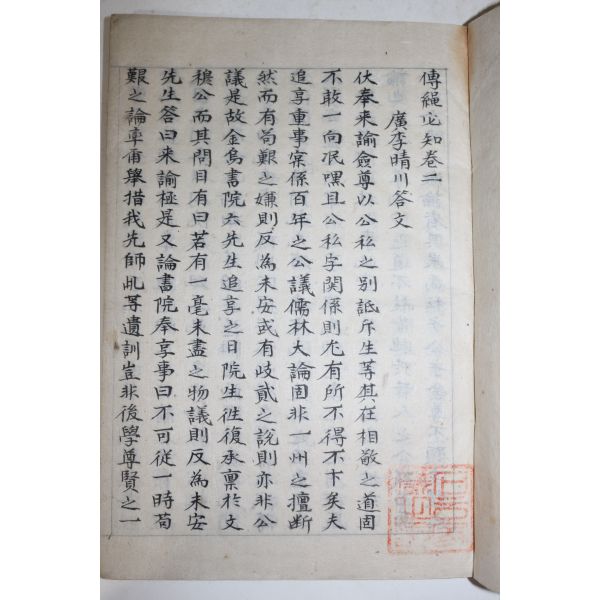 傳繩必知卷二
廣李晴川答文
伏奉来諭僉尊以公私之别詆斥生等其在相敬之道固
不敢一向泯嘿且公私字関係則尤有所不得不卞矣夫
追享重事案係百年之公議儒林大論固非一州之擅断
然而有苟艱之嫌則反為未安或有歧貳之說則亦非公
議是故金烏書院六先生追享之日院生徃復承稟於文
穆公而其問目有曰若有一毫未盡之物議則反為未安
先生答曰来諭極是又論書院奉享事曰不可従一時苟
艱之論率甭舉措我先師此等遺訓豈非後學尊賢之一